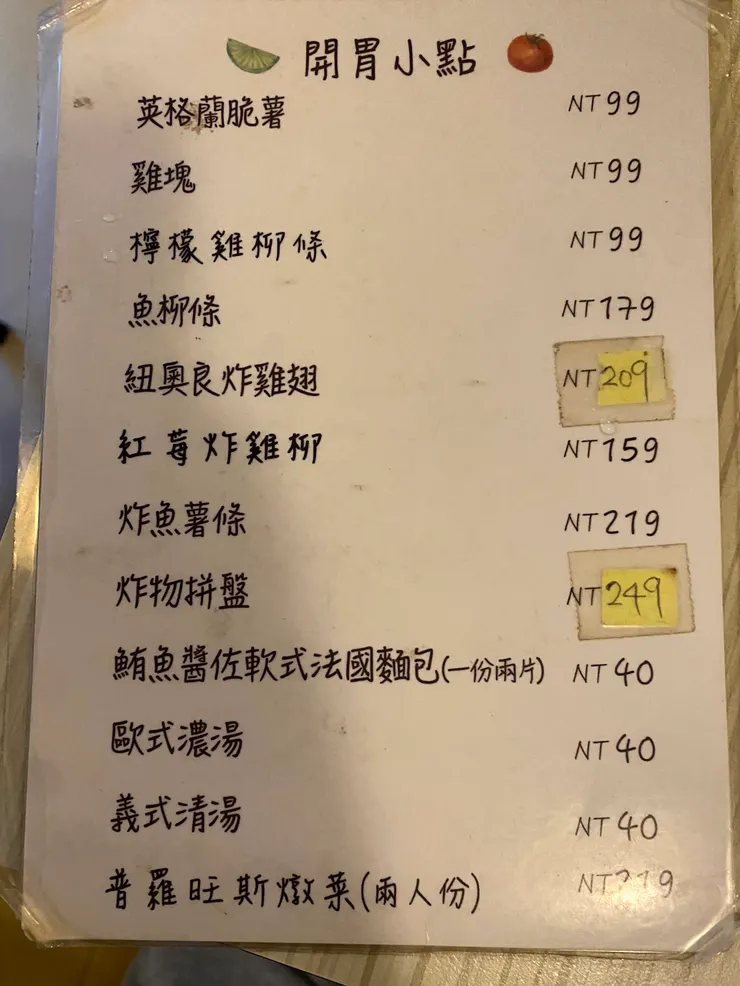 開胃小點
英格蘭脆薯 NT 99
雞塊 NT 99
檸檬雞柳條 NT 99
魚柳條 NT 179
紐奧良炸雞翅 NT 209
紅莓炸雞柳 NT 159
炸魚薯條 NT 219
炸物拼盤 NT 249
鮪魚醬佐軟式法國麵包(一份兩片) NT 40
歐式濃湯 NT 40
義式清湯 NT 40
普羅旺斯燉菜(兩人份) NT